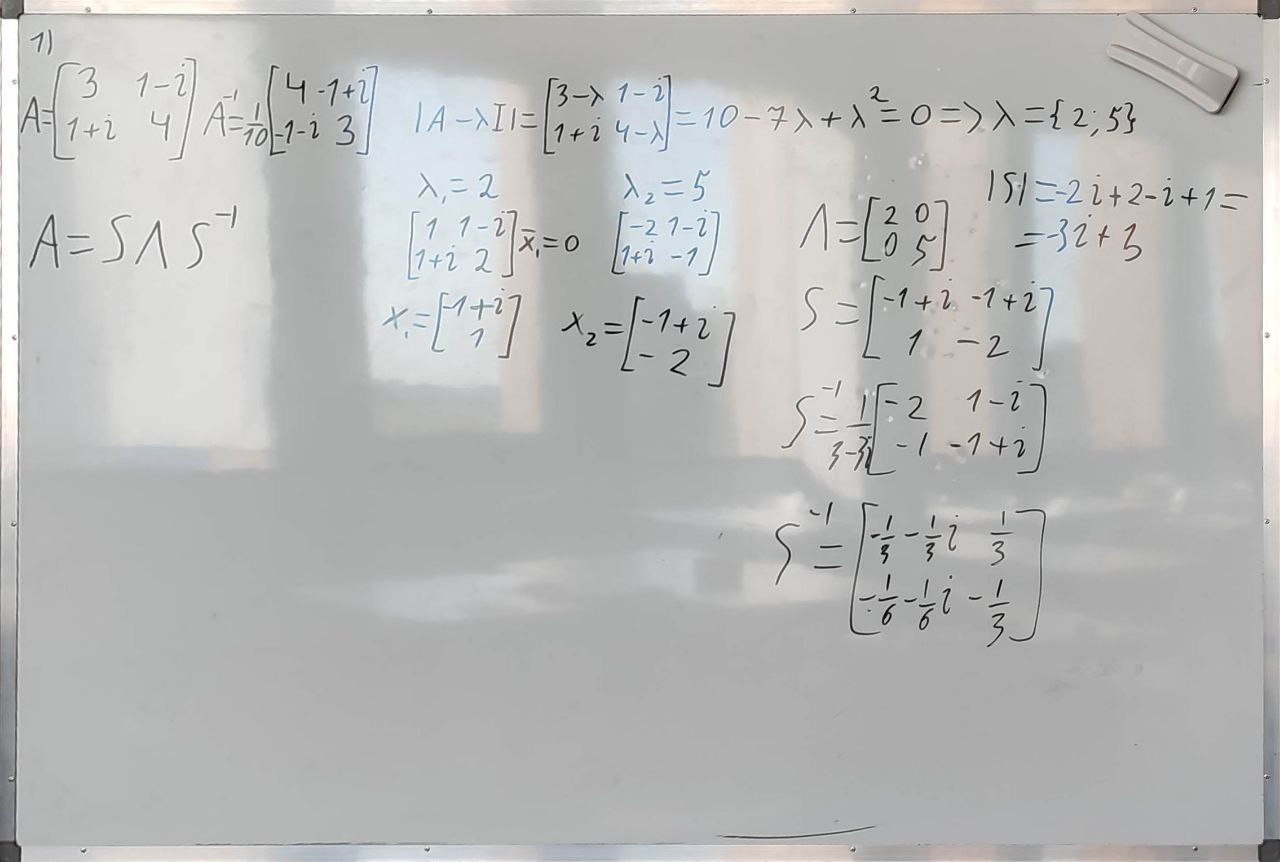 1)
A=[3 1-i; 1+i 4] A⁻¹=1/10[4 -1+i; -1-i 3] |A-λI|=[3-λ 1-i; 1+i 4-λ]=10-7λ+λ²=0=>λ={2;5}
λ₁=2 λ₂=5
A=SΛS⁻¹
[1 1-i; 1+i 2]x̄₁=0 [-2 1-i; 1+i -1]
x₁=[-1+i; 1] x₂=[-1+i; -2]
Λ=[2 0; 0 5]
|S|=-2i+2-i+1=
=-3i+3
S=[-1+i -1+i; 1 -2]
S⁻¹=1/(3-3i)[-2 1-i; -1 -1+i]
S⁻¹=[-1/3-1/3i 1/3; -1/6-1/6i -1/3]